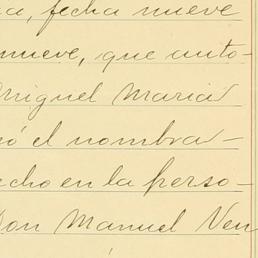 a, fecha nueve
nueve, que auto-
Miguel Maria
ó el nombra-
echo en la perso-
Don Manuel Ven